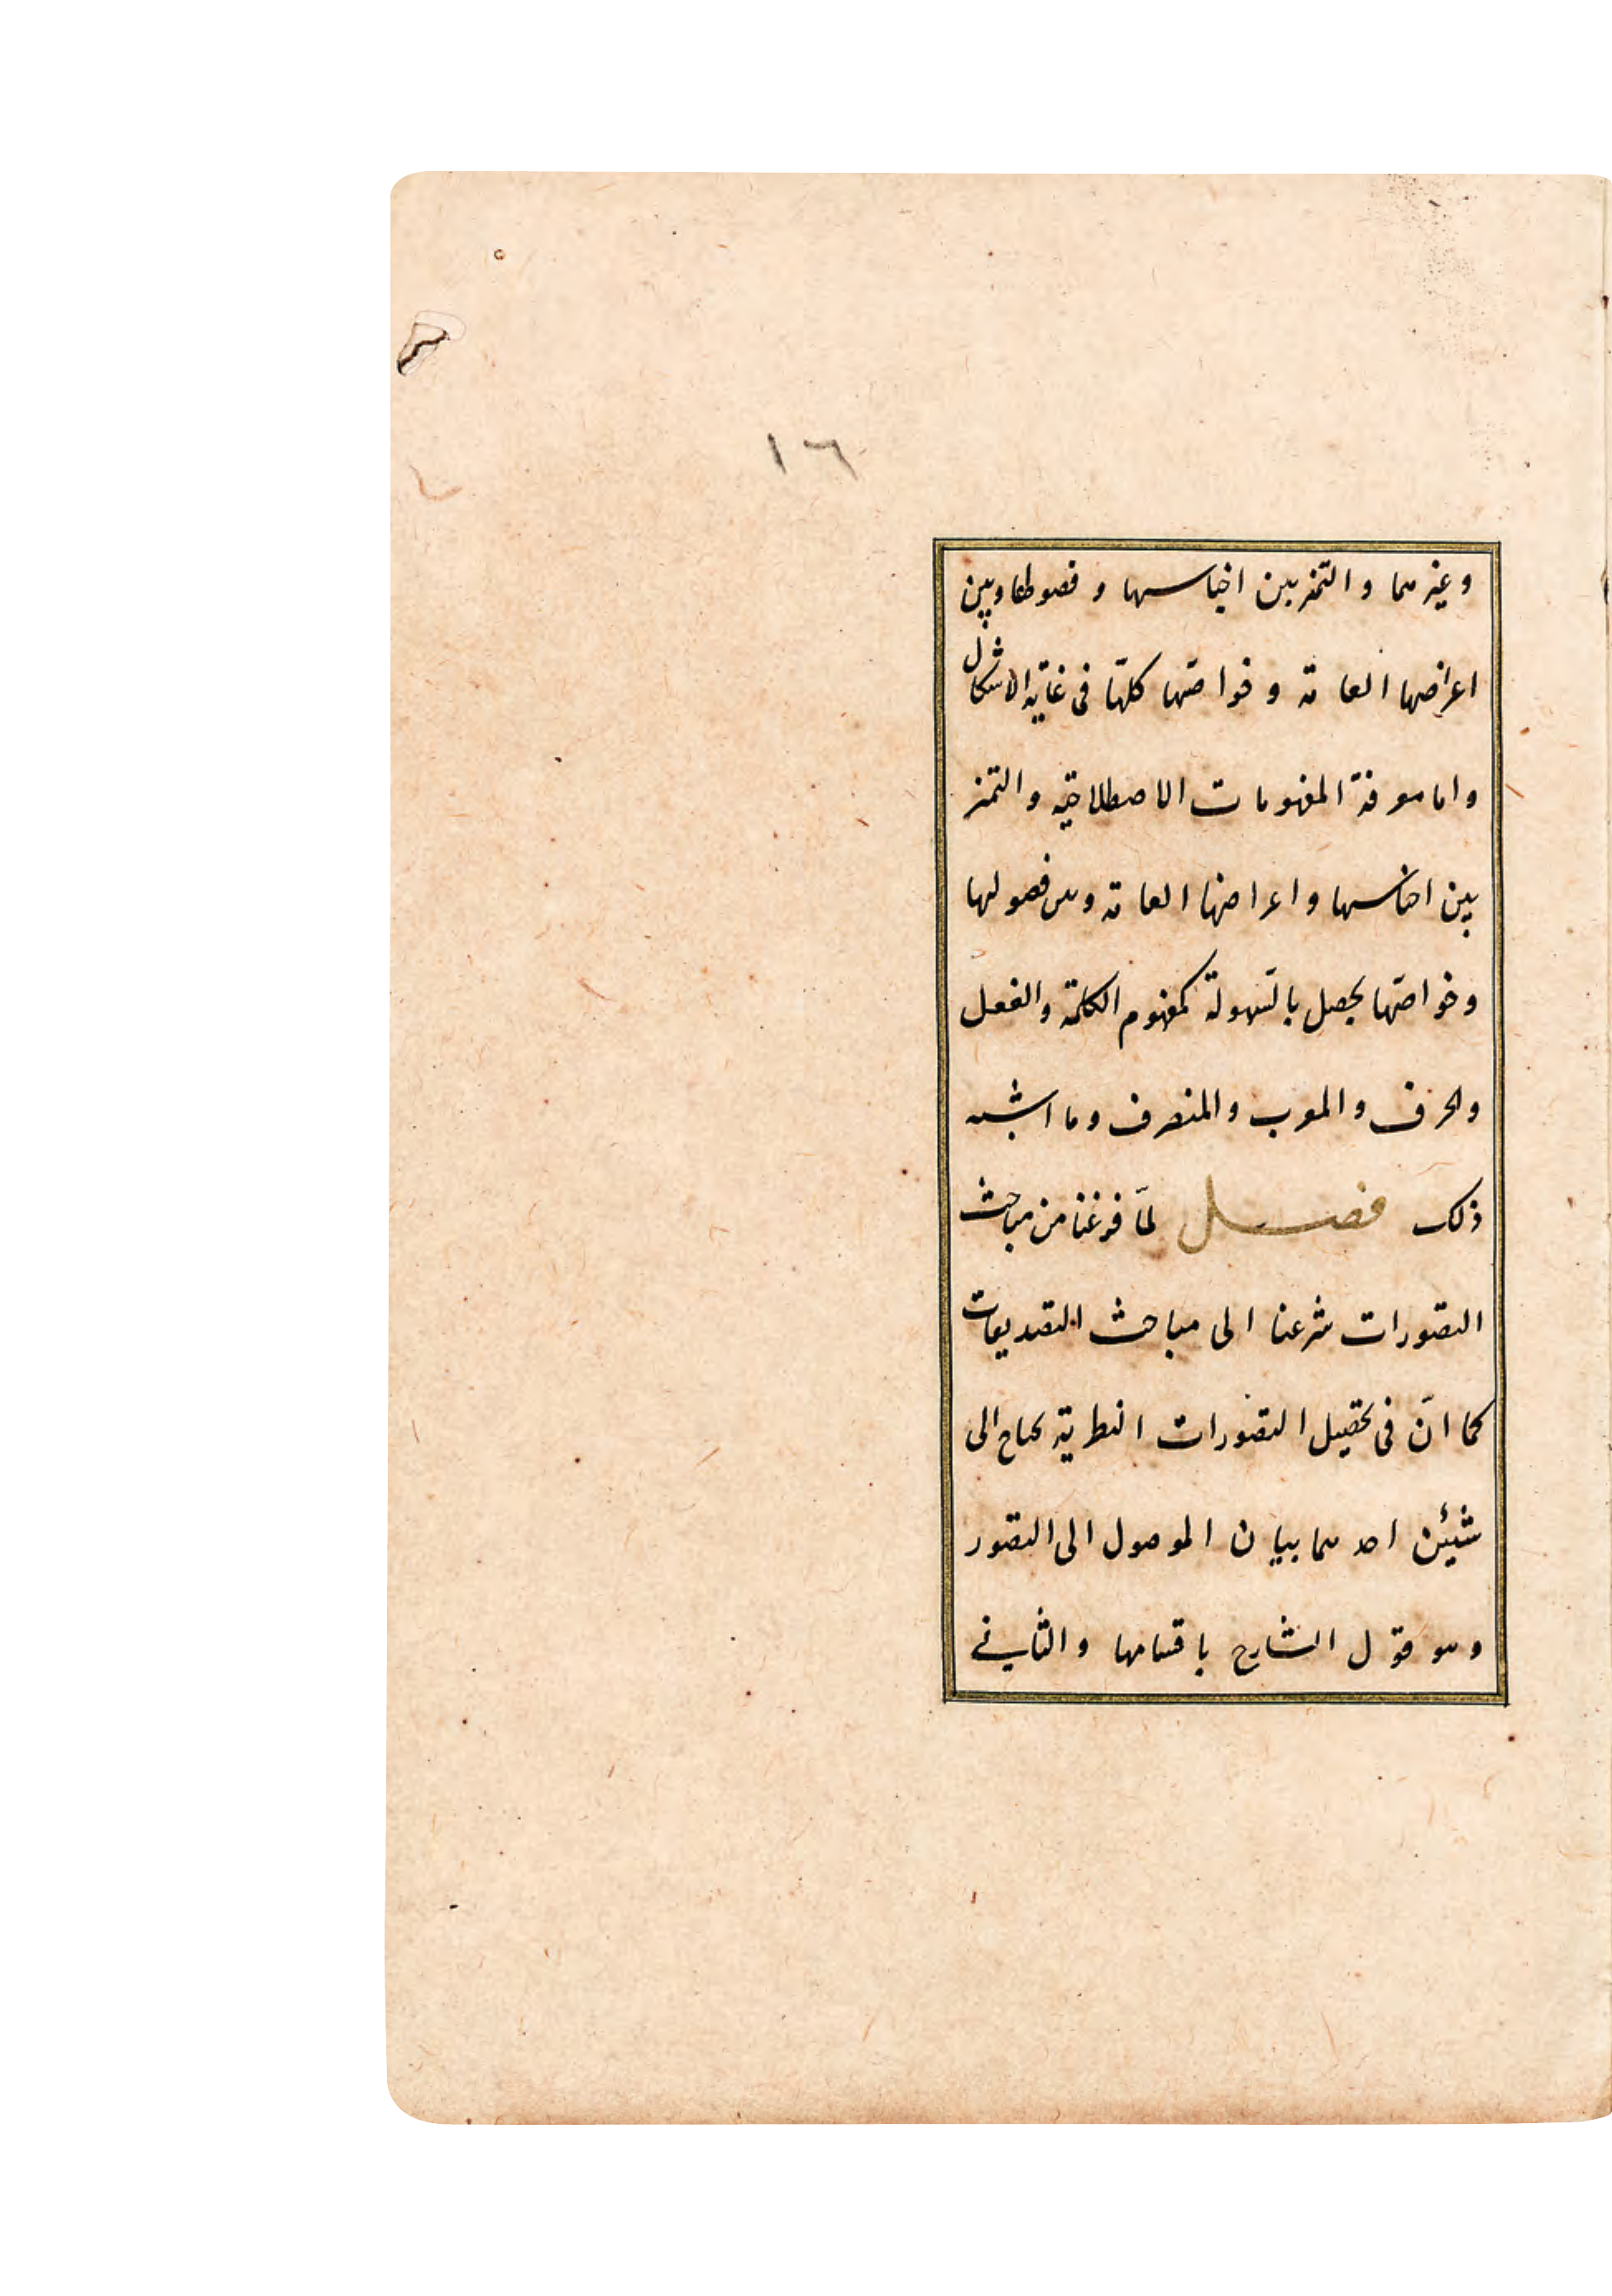 ١٦
وغيرهما والتمیز بين اجناسها و فصولها وبين
اعراضها العامة و خواصّها كلّها فى غاية الاشكال
واما معرفة المفهومات الاصطلاحيّة والتميز
بين اجناسها واعراضها العامة وبين فصولها
وخواصّها يحصل بالسّهولة كمفهوم الكلمة والفعل
والحرف والمعرب والمنصرف وما اشبه
ذلك فصل لمّا فرغنا من مباحث
التصورات شرعنا الى مباحث التصديقات
كما انّ فى تحصيل التصورات النظرية يحتاج الى
شيئين احدهما بيان الموصول الى التصور
وهو قول الشارح باقسامها والثانى